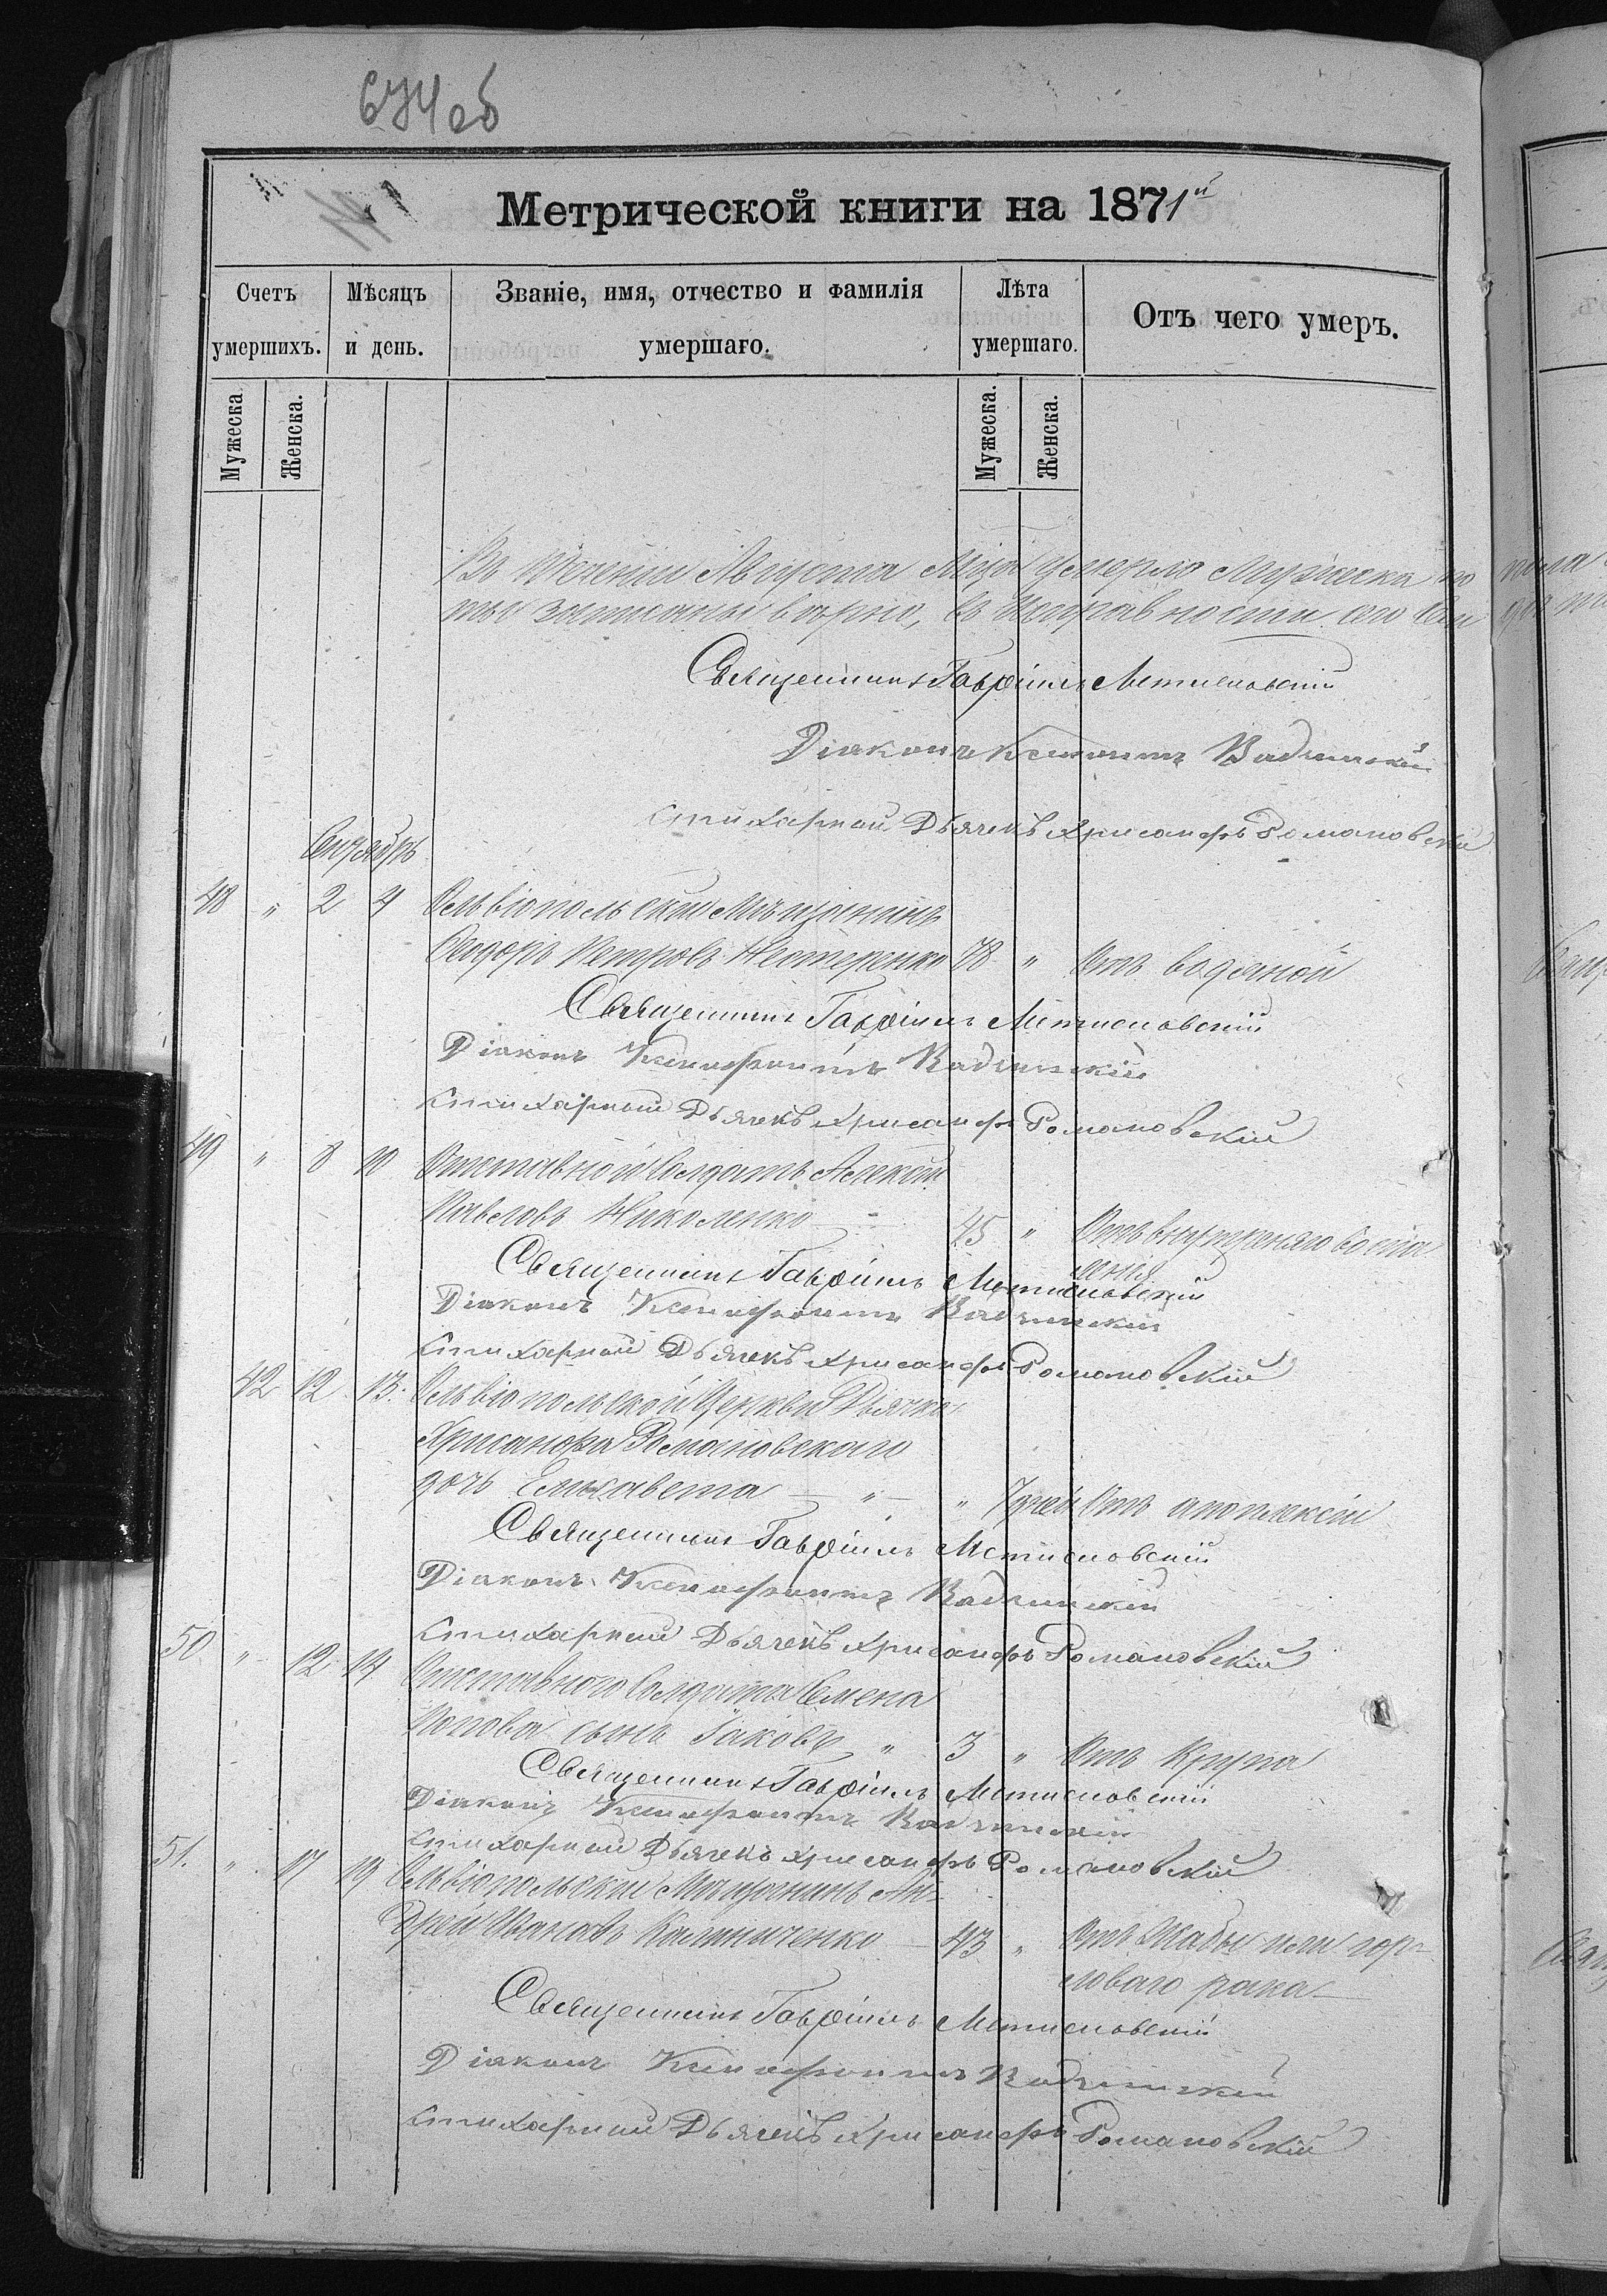 674об
№ 1
Метрической книги на 1871й
Счетъ умершихъ.
Мѣсяцъ и день.
Званіе, имя, отчество и фамилія умершаго.
Лѣта умершаго.
Отъ чего умеръ.
Мужеска. Женска.
Мужеска. Женска.
Въ теченіи Августа Мца умерло Мужеска по
записаны верно, въ исправности
Священникъ Гавріилъ Мстиславскій
Діаконъ Ксенофонтъ
Стихарный Дьячекъ Хрисанфъ Романовскій
Сентябрь
48 " 2 4 Ольвіопольскій Мѣщанинъ
Ѳеодоръ Петровъ Нестеренко 78 " Отъ водяной
Священникъ Гавріилъ Мстиславскій
Діаконъ Ксенофонтъ
Стихарный Дьячекъ Хрисанфъ Романовскій
49 " 8 10 Отставной Солдатъ Алексѣй
Павловъ Николенко 45 " Отъ внутренняго воспа
ленія
Священникъ Гавріилъ Мстиславскій
Діаконъ Ксенофонтъ
Стихарный Дьячекъ Хрисанфъ Романовскій
42 12 13. Ольвіопольской Церкви Дьячка
Хрисанфа Романовскаго
дочь Елисавета — " — " 7 дней Отъ апоплексіи
Священникъ Гавріилъ Мстиславскій
Діаконъ Ксенофонтъ
Стихарный Дьячекъ Хрисанфъ Романовскій
50 " 12 14 Отставного Солдата Семена
Попова сынъ Іаковъ " 3 " Отъ Крупа
Священникъ Гавріилъ Мстиславскій
Діаконъ Ксенофонтъ
Стихарный Дьячекъ Хрисанфъ Романовскій
51. " 17 19 Ольвіопольскій Мѣщанинъ Ан-
дрей Ивановъ Калиниченко — 43 " Отъ Жабы или гор-
ловаго рака
Священникъ Гавріилъ Мстиславскій
Діаконъ Ксенофонтъ
Стихарный Дьячекъ Хрисанфъ Романовскій